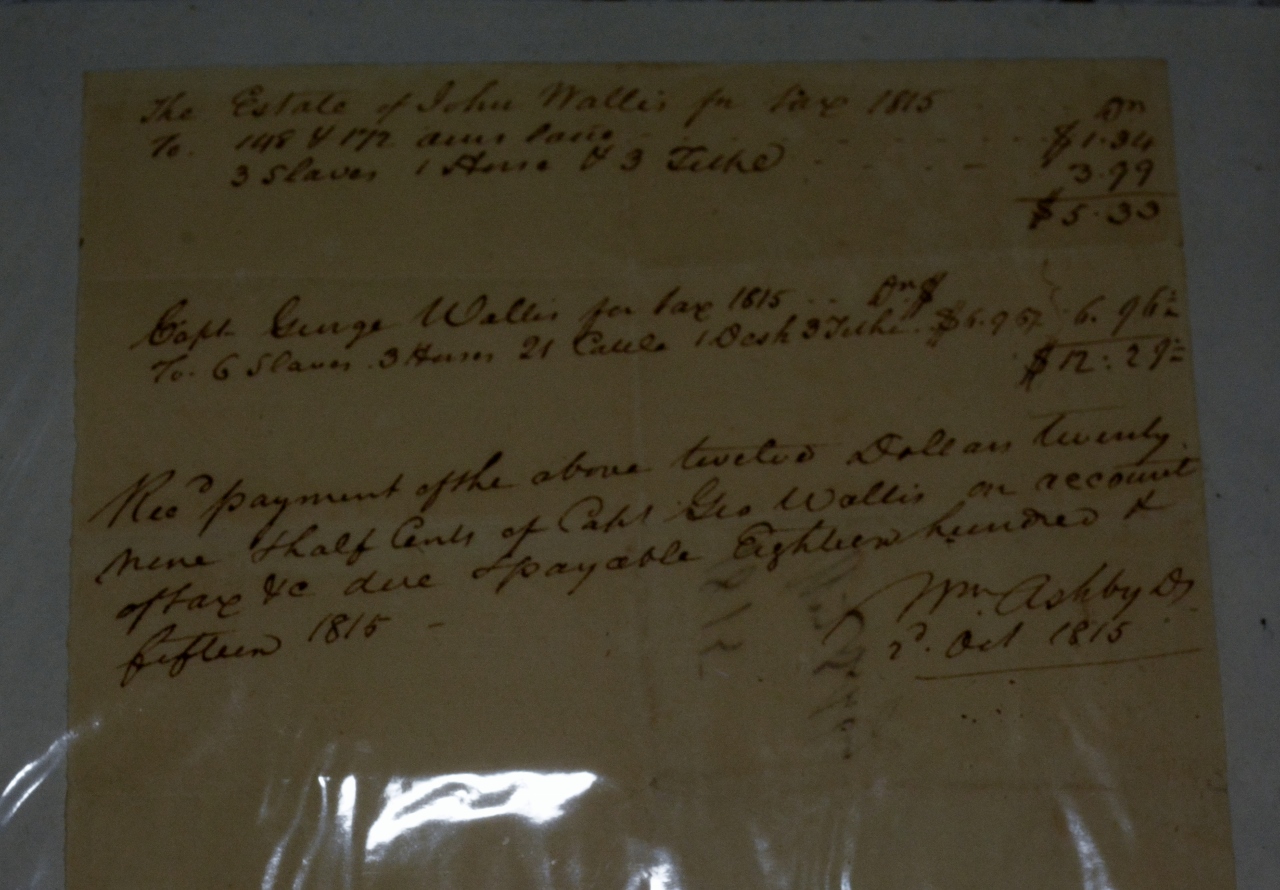 The Estate of John Wallis for tax 1815 Dr
To. 148 & 172 acres land $1.34
3 Slaves 1 Horse & 3 Tithe 3.99
$5.33
Capt George Wallis for tax 1815 Dr $
To. 6 Slaves 3 Horses 21 Cattle 1 Desk 3 Tithe $6.96½ 6.96½
$12.29½
Recd payment of the above twelve Dollars twenty
nine & half Cents of Capt Geo Wallis on account
of tax &c due & payable Eighteen hundred &
fifteen 1815 -
Wm Ashby DS
2d. Oct 1815